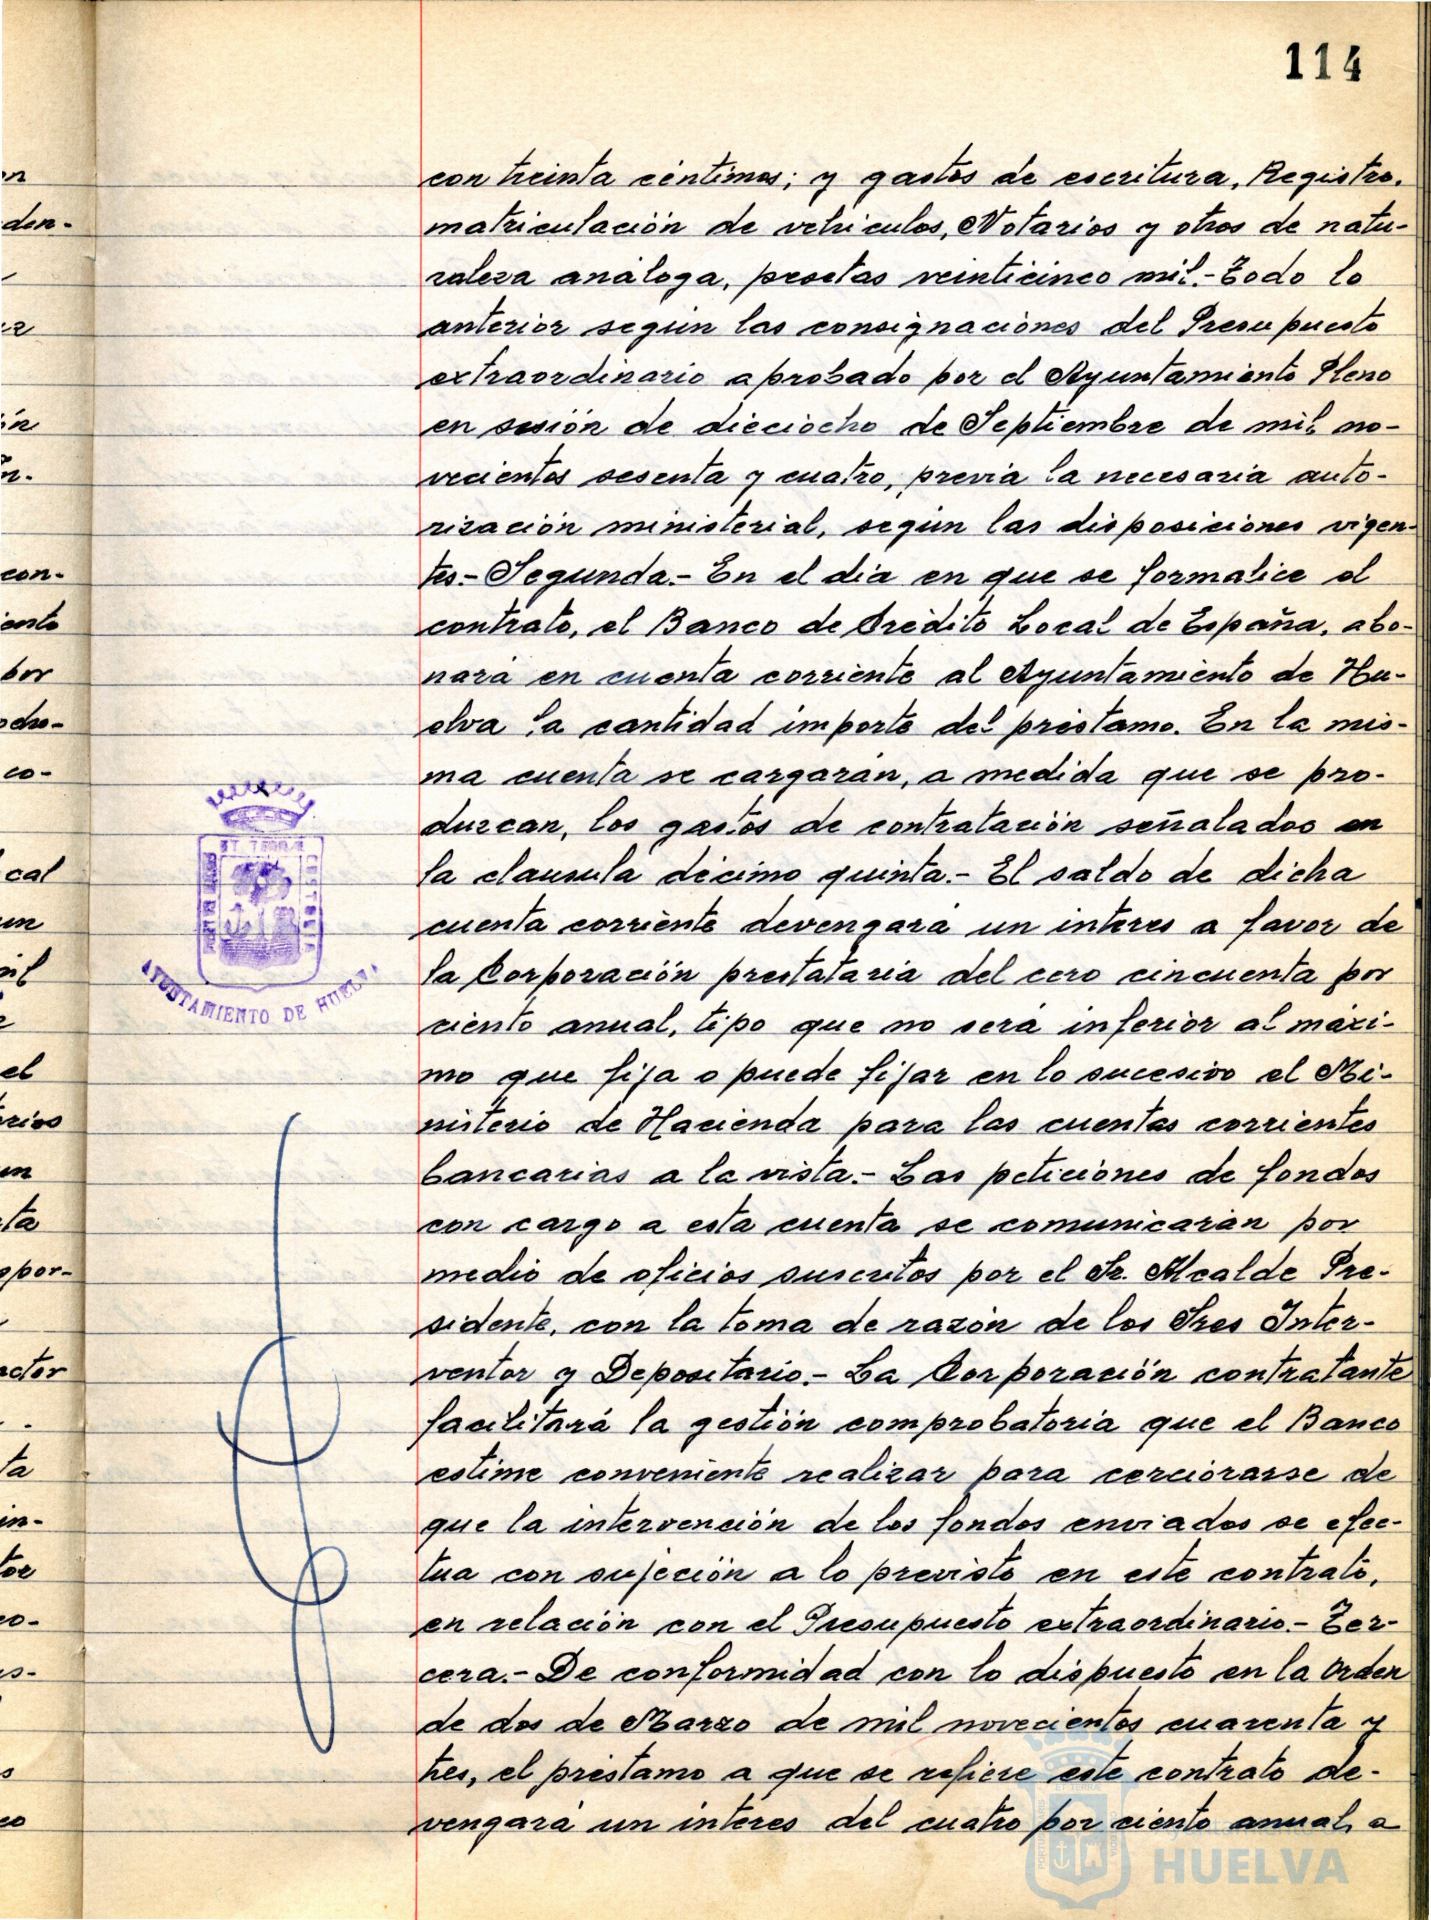 114
con treinta céntimos; y gastos de escritura, Registro,
matriculación de vehiculos, Notarios y otros de natu-
raleza análoga, pesetas veinticinco mil.- Todo lo
anterior según las consignaciones del Presupuesto
extraordinario aprobado por el Ayuntamiento Pleno
en sesión de dieciocho de Septiembre de mil no-
vecientos sesenta y cuatro, previa la necesaria auto-
rización ministerial, según las disposiciones vigen-
tes.- Segunda.- En el dia en que se formalice el
contrato, el Banco de Crédito Local de España, abo-
nará en cuenta corriente al Ayuntamiento de Hu-
elva la cantidad importe del préstamo. En la mis-
ma cuenta se cargarán, a medida que se pro-
duzcan, los gastos de contratación señalados en
la clausula décimo quinta.- El saldo de dicha
cuenta corriente devengará un interes a favor de
la Corporación prestataria del cero cincuenta por
ciento anual, tipo que no será inferior al máxi-
mo que fija o puede fijar en lo sucesivo el Mi-
nisterio de Hacienda para las cuentas corrientes
bancarias a la vista.- Las peticiones de fondos
con cargo a esta cuenta se comunicarán por
medio de oficios suscritos por el Sr. Alcalde Pre-
sidente, con la toma de razón de los Sres Inter-
ventor y Depositario.- La Corporación contratante
facilitará la gestión comprobatoria que el Banco
estime conveniente realizar para cerciorarse de
que la intervención de los fondos enviados se efec-
tua con sujeción a lo previsto en este contrato,
en relación con el Presupuesto extraordinario.- Ter-
cera.- De conformidad con lo dispuesto en la Orden
de dos de Marzo de mil novecientos cuarenta y
tres, el préstamo a que se refiere este contrato de-
vengará un interes del cuatro por ciento anual, a
AYUNTAMIENTO DE HUELVA
HUELVA